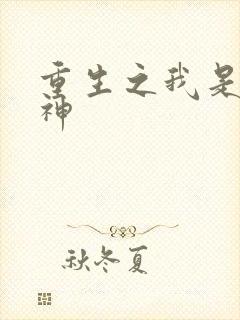 重生之我是
神
秋冬夏